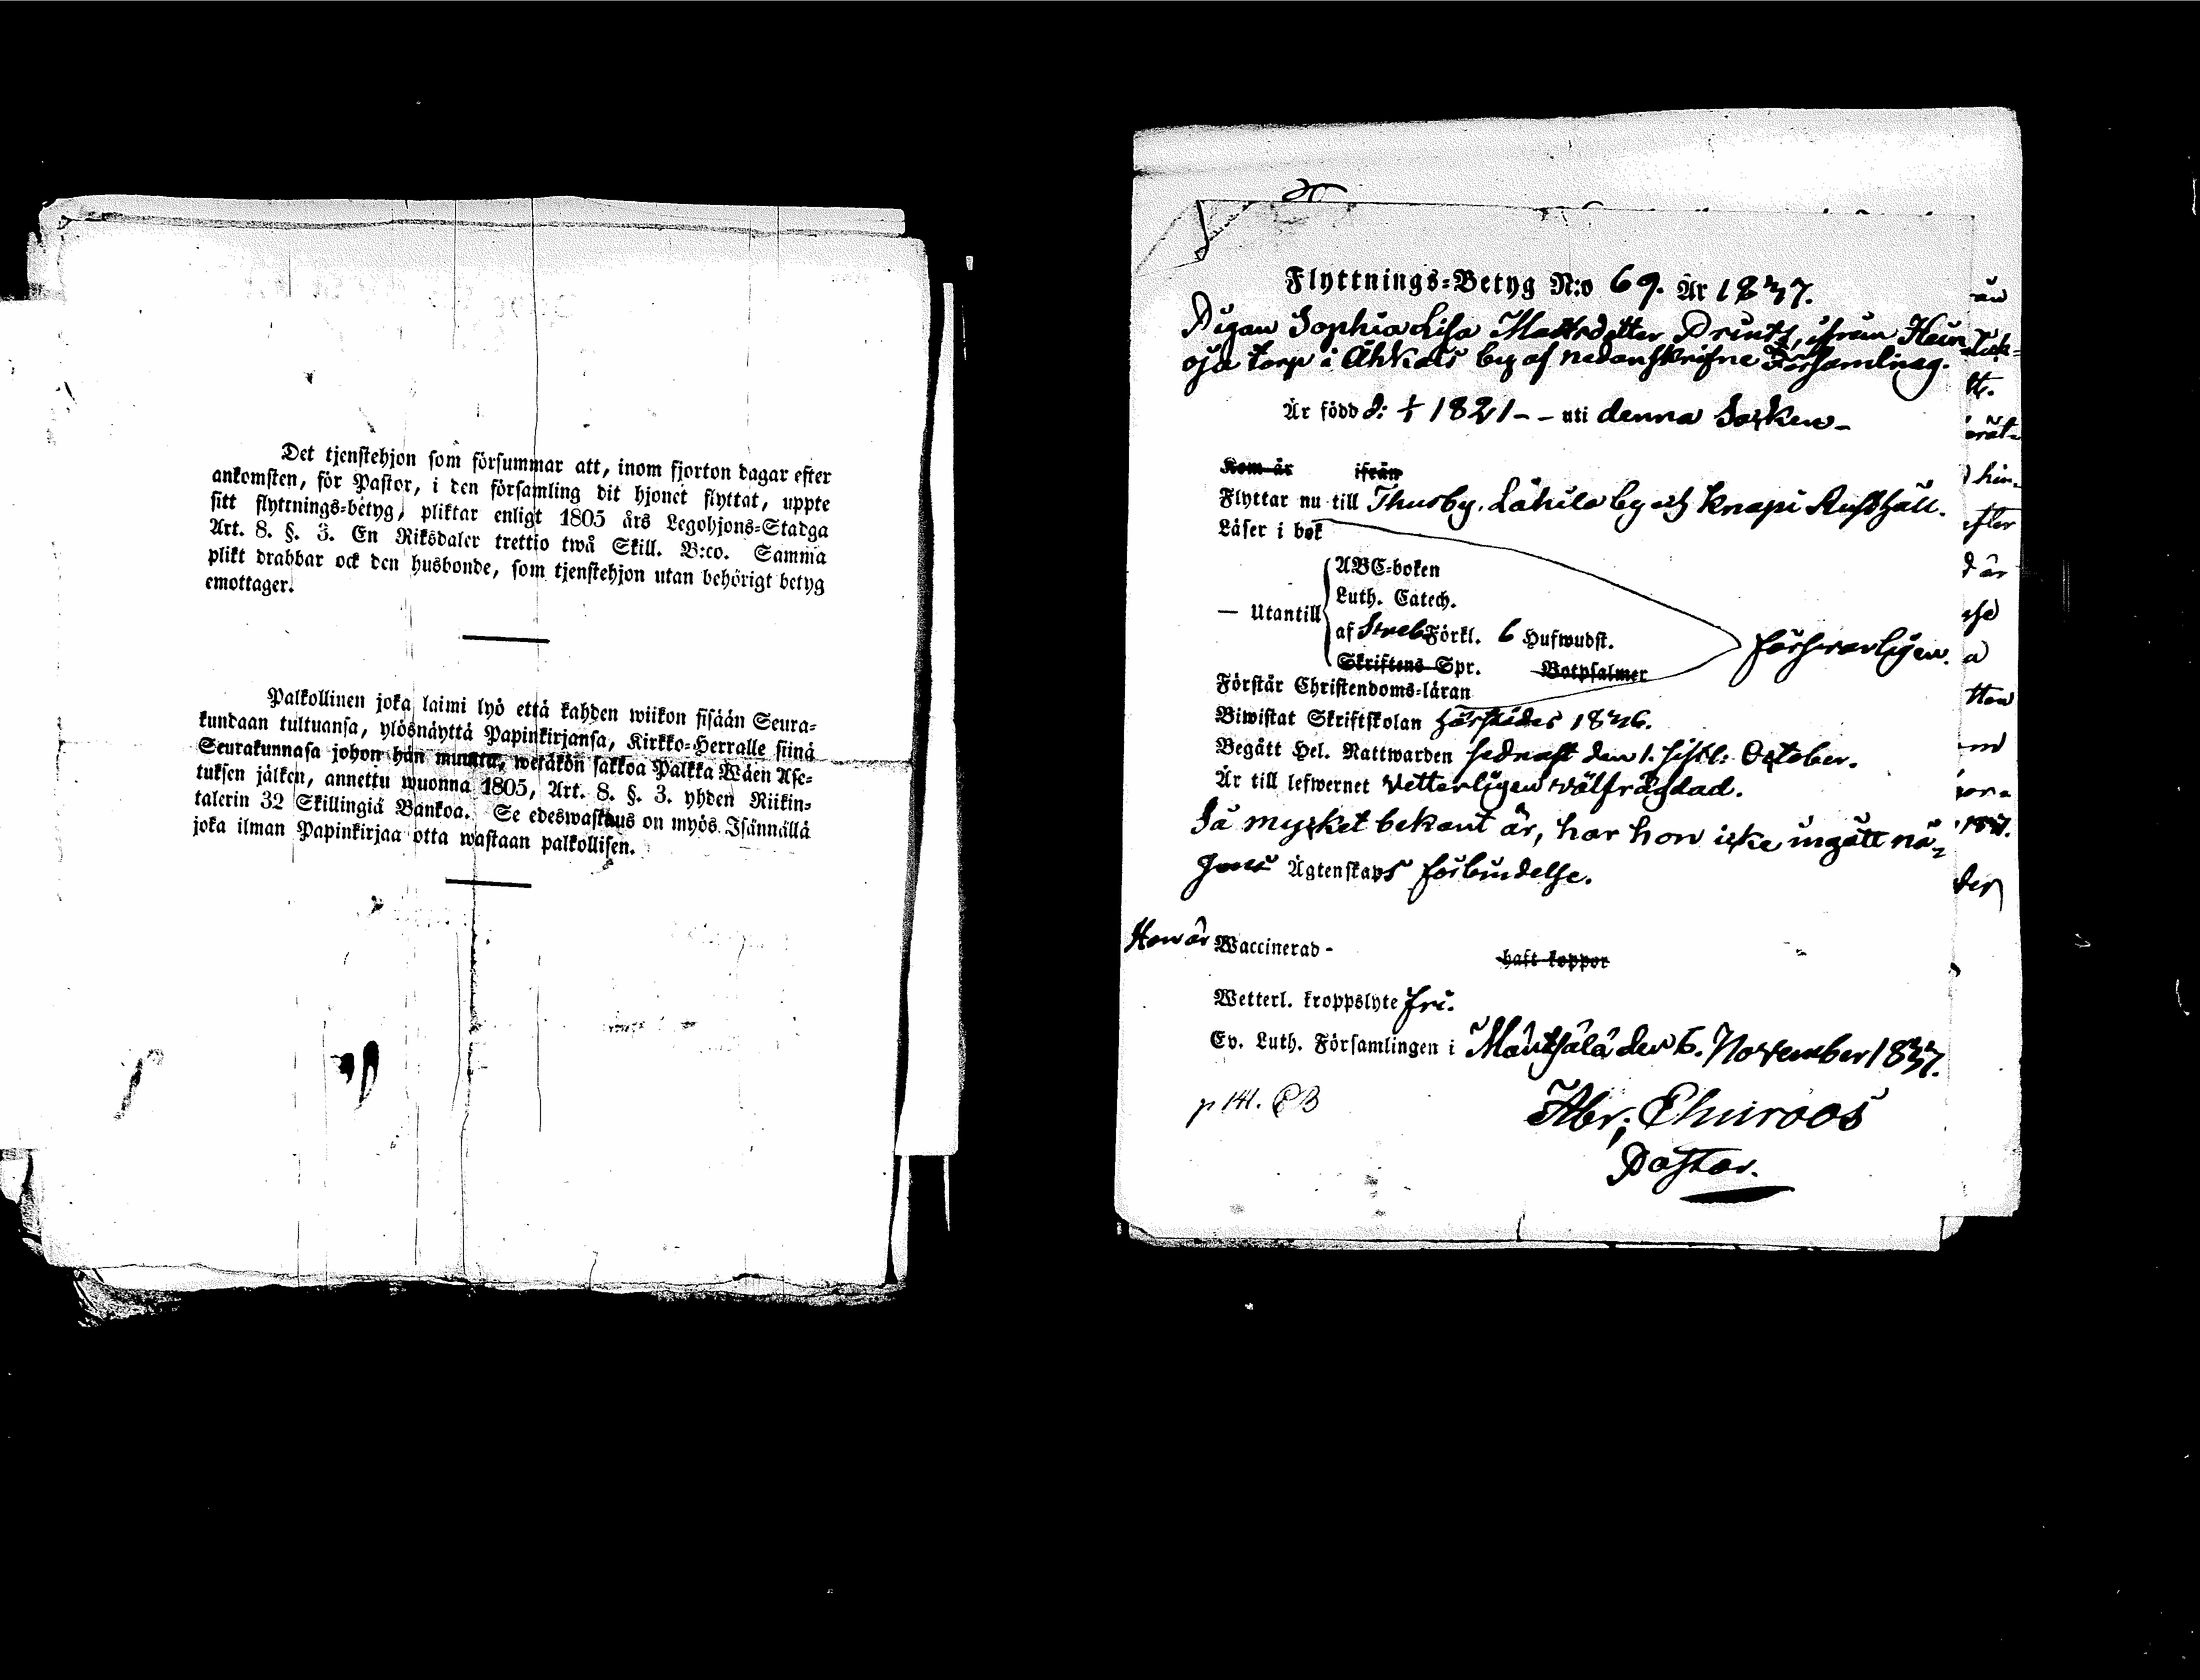 Det tjenstehjon som försummar att, inom fjorton dagar efter
ankomsten, för Pastor, i den församling dit hjonet flyttat, uppte
sitt flyttnings-betyg, pliktar enligt 1805 års Legohjons-Stadga
Art. 8. §. 3. En Riksdaler trettio twå Skill. B:co. Samma
plikt drabbar ock den husbonde, som tjenstehjon utan behörigt betyg
emottager.
Palkollinen joka laimi lyö että kahden wiikon sisään Seura-
kundaan tultuansa, ylösnäyttä Papinkirjansa, Kirkko-Herralle siinä
Seurakunnasa johon hän muutta, wetäkön sakkoa Palkka Wäen Ase-
tuksen jälken, annettu wuonna 1805, Art. 8. §. 3. yhden Riikin-
talerin 32 Skillingiä Bankoa. Se edeswastaus on myös Isännällä
joka ilman Papinkirjaa otta wastaan palkollisen.
Flyttnings-Betyg N:o 69. År 1847.
Pigan Sophia Lisa Mattsdotter Prints, ifrån Hein
oja torp i Ähkäis by af nedanskrifne Församling.
Är född d: 1/1 1821 - - uti denna Socken -
Kom år ifrån
Flyttar nu till Thusby, Lahila by och Knapi Rusthåll.
Läser i bok
ABC-boken
Luth. Catech.
— Utantill
af Sveb Förkl. 6 Hufwudst.
Skriftens Spr. Botpsalmer
försvarligen.
Förstår Christendoms-läran
Biwistat Skriftskolan härstädes 1846.
Begått Hel. Nattwarden sednast den 1. sistl: October.
Är till lefwernet vetterligen välfrägdad.
Så mycket bekant är, har hon icke ingått nå-
gons Ägtenskaps förbindelse.
Hon är Waccinerad - haft koppor
Wetterl. kroppslyte fri.
Ev. Luth. Församlingen i Mäntsälä den 6. November 1847.
p 141. CB
Abr: Ehnroos
Pastor.